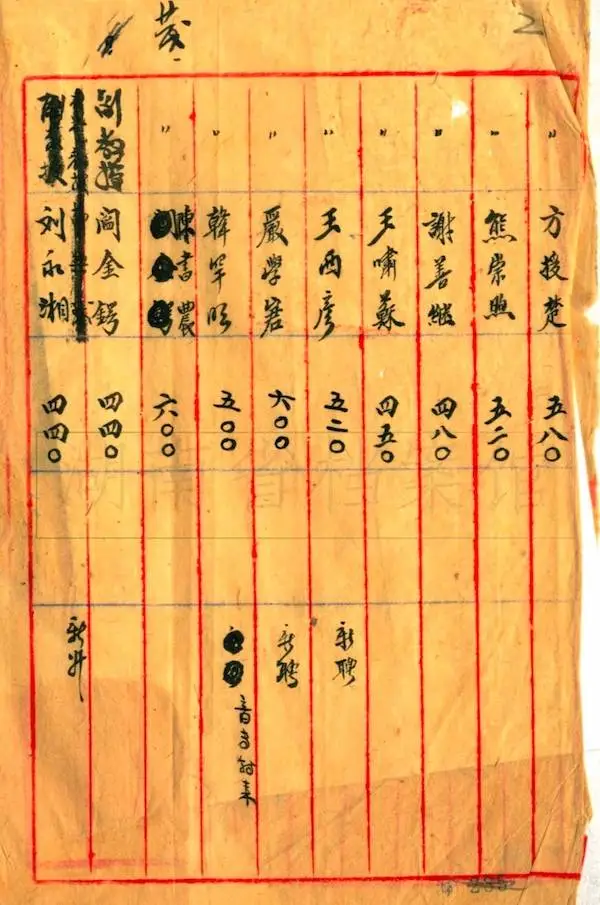 2
〃 方授楚 五八〇
〃 熊崇煦 五二〇
〃 謝善継 四八〇
〃 王嘯蘇 四五〇
〃 王西彦 五二〇 新聘
〃 嚴學宭 六〇〇 新聘
〃 韓罕明 五〇〇 音專轉来
〃 陳書農 六〇〇
副教授 閻金鍔 四四〇
刘永湘 四四〇 新升
湖南省档案馆